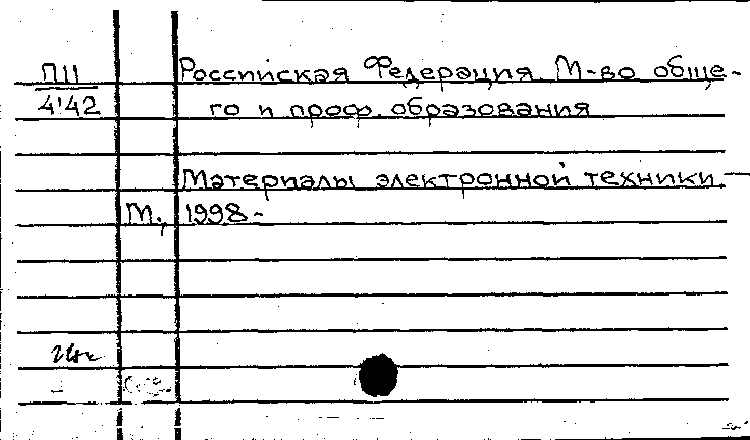 П11 Российская Федерация. М-во обще-
4'42 го и проф. образования
Материалы электронной техники. —
М., 1998-